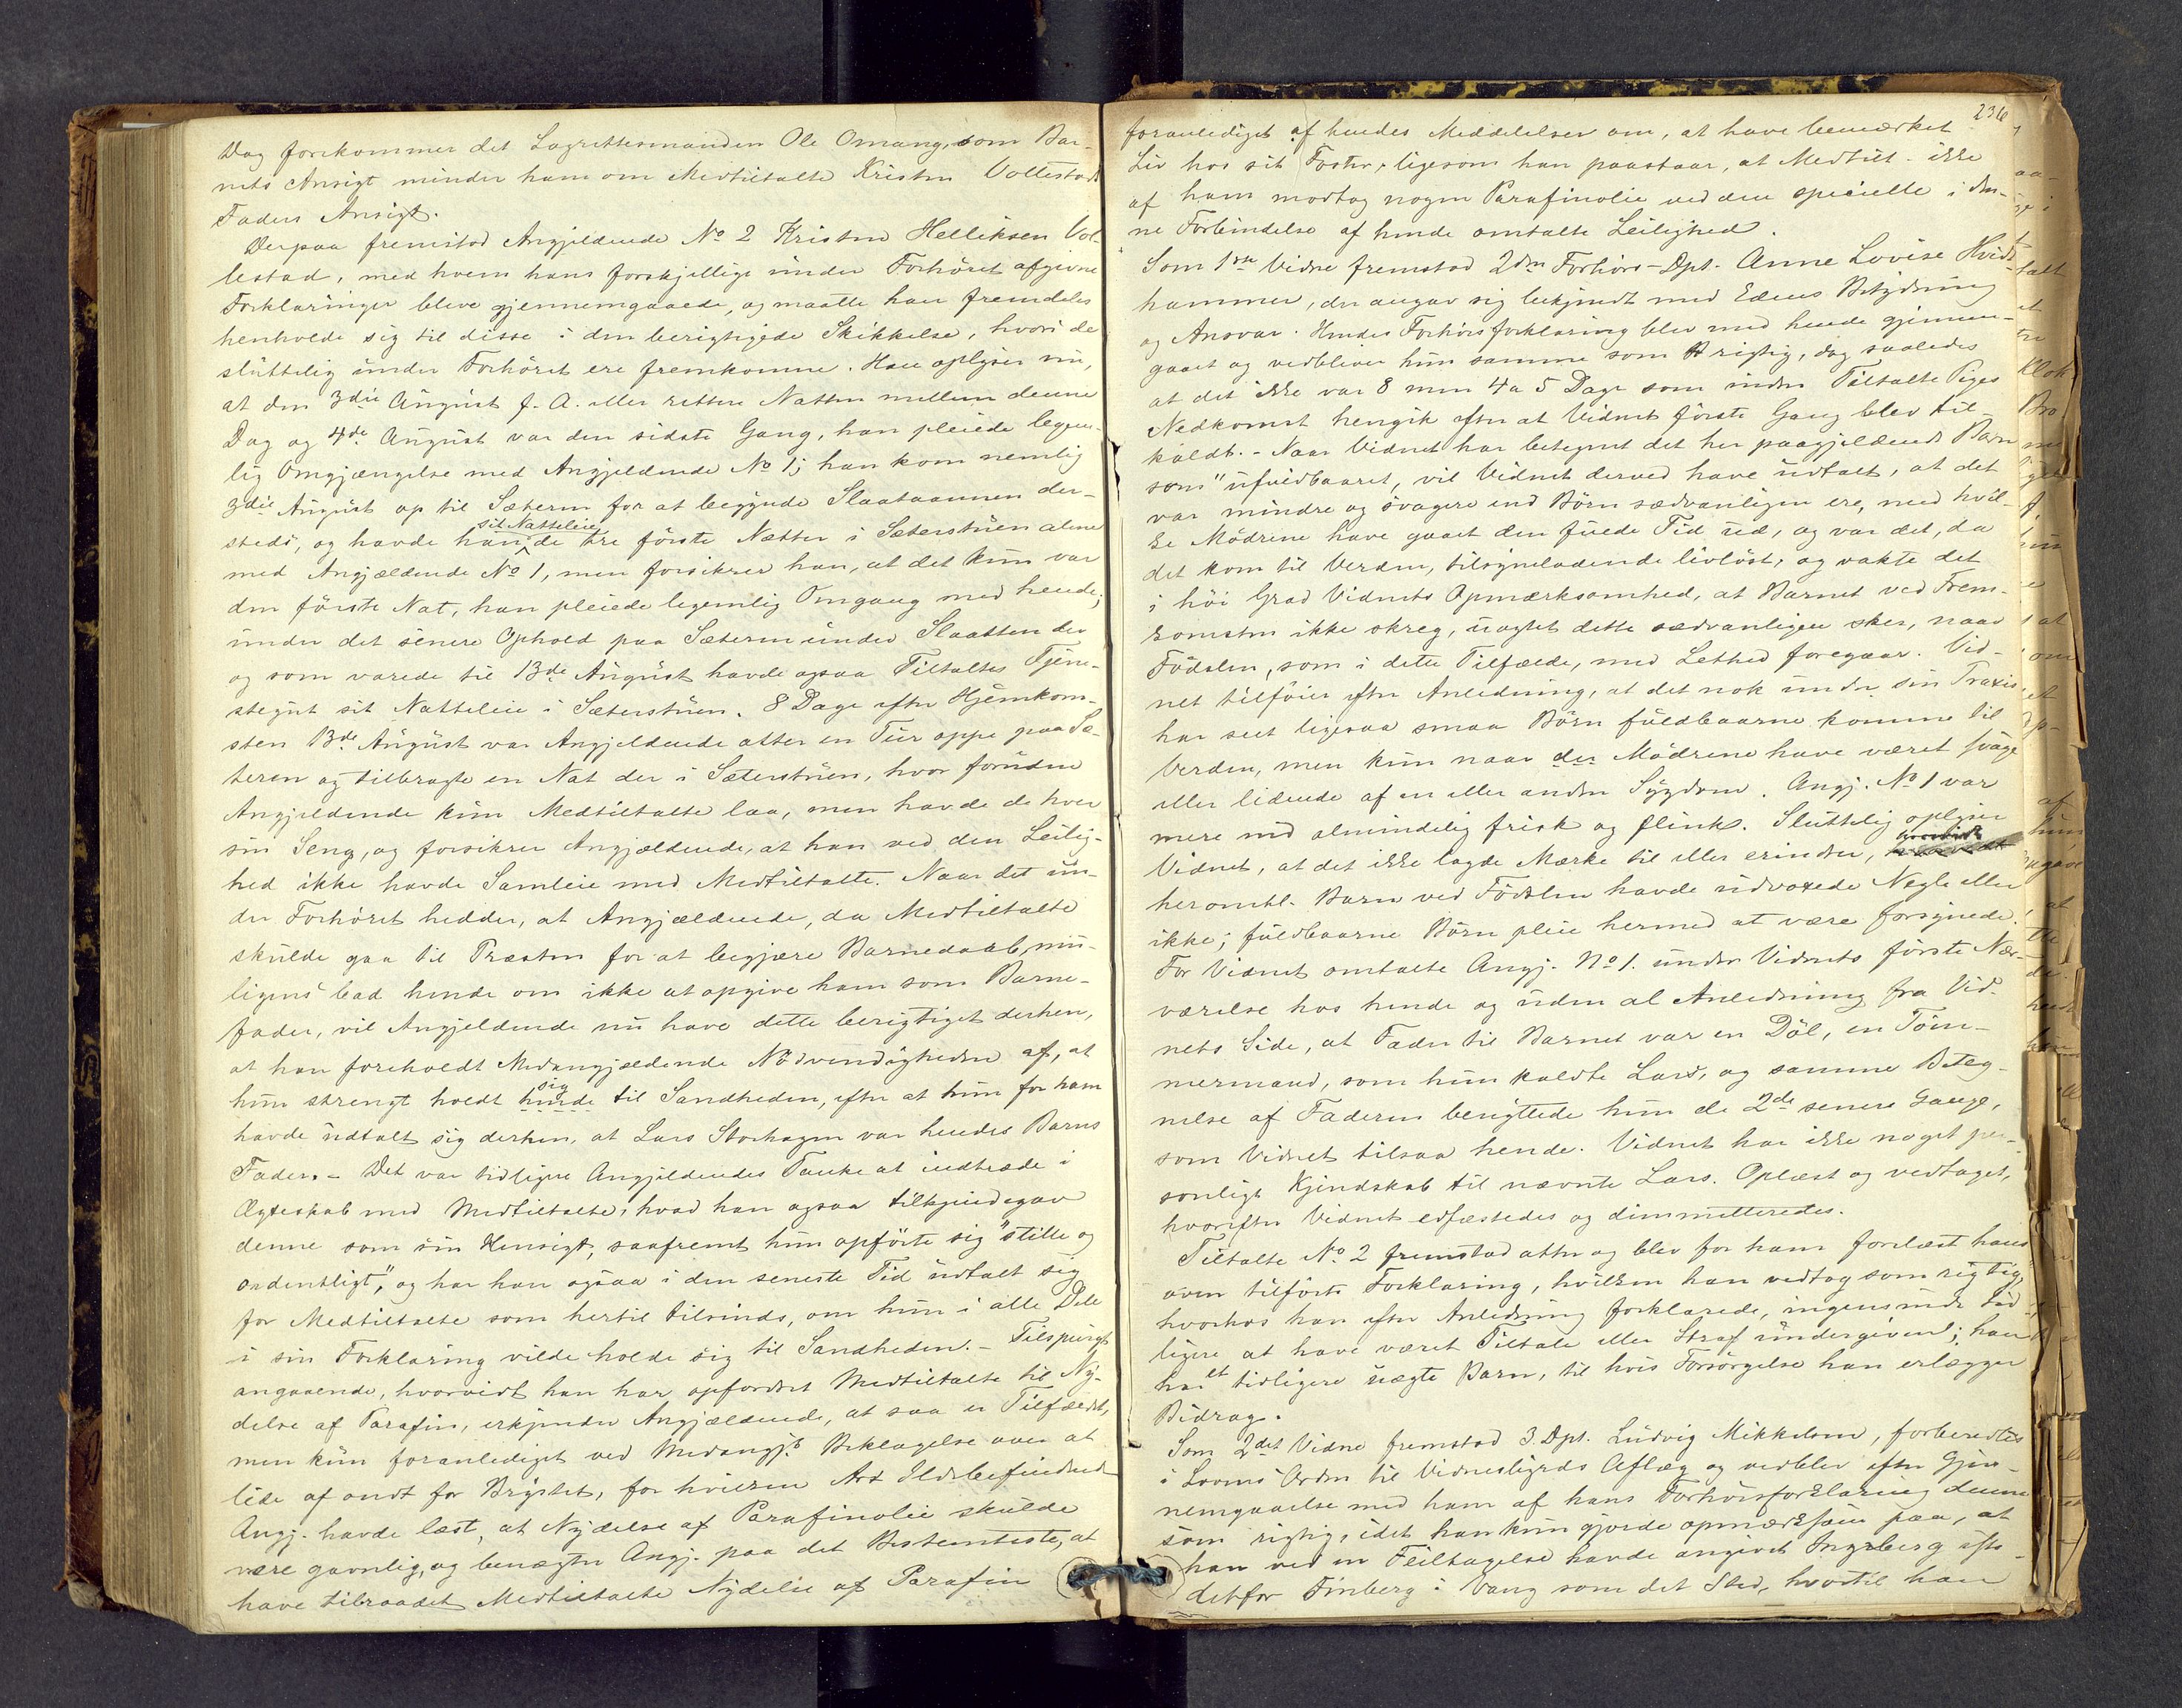 Dog forekommer det Lagrettesmanden Ole Omang, som Bar-
nets Ansigt minder ham om Medtiltalte Kristen Vollestads
Faders Ansigt.
Derpaa fremstod Angjeldende No 2 Kristen Helliksen Vol-
lestad, med hvem hans forskjellige under Forhöret afgivne
Forklaringer bleve gjennemgaaede, og maatte han fremdeles
henholde sig til disse i den berigtigede Skikkelse, hvori de
sluttelig under Forhöret ere fremkomne. Han oplyser nu,
at den 3die August f. A. eller rettere Natten mellem denne
Dag og 4de August var den sidste Gang, han pleiede legem-
lig Omgjængelse med Angjeldende No 1; han kom nemlig
3die August op til Sæteren for at begynde Slaataannen der-
steds, og havde han sit Natteleie de tre förste Nætter i Sæterstuen alene
med Angjældende No 1, men forsikrer han, at det kun var
den förste Nat, han pleiede legemlig Omgang med hende;
under det senere Ophold paa Sæteren under Slaatten der
og som varede til 13de August havde ogsaa Tiltaltes Tjene-
stegut sit Natteleie i Sæterstuen. 8 Dage efter Hjemkom-
sten 13de August var Angjeldende atter en Tur oppe paa Sæ-
teren og tilbragte en Nat der i Sæterstuen, hvor foruden
Angjeldende kun Medtiltalte laa, men havde de hver
sin Seng, og forsikrer Angjældende, at han ved den Leilig-
hed ikke havde Samleie med Medtiltalte. Naar det un-
der Forhöret hedder, at Angjældende, da Medtiltalte
skulde gaa til Præsten for at begjære Barnedaab, nu-
ligens bad hende om ikke at opgive ham som Barne-
fader, vil Angjeldende nu have dette berigtiget derhen,
at han foreholdt Medangjældende Nödvendigheden af, at
hun strengt holdt hende sig til Sandheden, efter at hun for ham
havde udtalt sig derhen, at Lars Storhagen var hendes Barns
Fader. - Det var tidligere Angjeldendes Tanke at indtræde i
Ægteskab med Medtiltalte, hvad han ogsaa tilkjendegav
denne som sin Hensigt, saafremt hun opförte sig "stille og
ordentligt," og har han ogsaa i den seneste Tid udtalt sig
for Medtiltalte som hertil tilsinds, om hun i alle Dele
i sin Forklaring vilde holde sig til Sandheden. - Tilspurgt
angaaende, hvorvidt han har opfordret Medtiltalte til Ny-
delse af Parafin, erkjender Angjældende, at saa er Tilfældet,
men kun foranlediget ved Medangjs Beklagelse over at
lide af ondt for Brystet, for hvilken Art Ildebefindende
Angj. havde læst, at Nydelse af Parafinolie skulde
være gavnlig, og benægter Angj. paa det Bestemteste, at
have tilraadet Medtiltalte Nydelse af Parafin
236
foranlediget af hendes Meddelelser om, at have bemærket
Liv hos sit Foster, ligesom han paastaar, at Medtilt. ikke
af ham modtog nogen Parafinolie ved den specielle i den-
ne Forbindelse af hende omtalte Leilighed.
Som 1ste Vidne fremstod 2den Forhörs-Dpt. Anne Lovise Hvids-
hammer, der angav sig bekjendt med Edens Betydning
og Ansvar. Hendes Forhörsforklaring blev med hende gjennem-
gaaet og vedbliver hun samme som rigtig, dog saaledes
at det ikke var 8 men 4 a 5 Dage som inden Tiltalte Piges
Nedkomst hengik efter at Vidnet förste Gang blev til-
kaldt. - Naar Vidnet har betegnet det her paagjeldende Barn
som "ufuldbaaret, vil Vidnet derved have udtalt, at det
var mindre og svagere end Börn sædvanligen ere, med hvil-
ke Mödrene have gaaet den fulde Tid ud, og var det, da
det kom til Verden, tilsyneladende livlöst, og vakte det
i höi Grad Vidnets Opmærksomhed, at Barnet ved Frem-
komsten ikke skreg, uagtet dette sædvanligen skes, naar
Födslen, som i dette Tilfælde, med Lethed foregaar. Vid-
net tilföier efter Anledning, at det nok under sin Praxis
har seet ligesaa smaa Börn fuldbaarne komme til
Verden, men kun naar der Mödrene have været svage
eller lidende af en eller anden Sygdom. Angj. No 1 var
mere end almindelig frisk og flink. Sluttelig oplyser
Vidnet, at det ikke lagde Mærke til eller erindrer,
her omtl. Barn ved Födslen havde udvoxede Negle eller
ikke; fuldbaarne Börn pleie hermed at være forsynede.
For Vidnet omtalte Angj. No 1. under Vidnets förste Nær-
værelse hos hende og uden al Anledning fra Vid-
nets Side, at Fader til Barnet var en Döl, en Töm-
mermand, som hun kaldte Lars, og samme Beteg-
nelse af Faderen benyttede hun de 2de senere Gange,
som Vidnet tilsaa hende. Vidnet har ikke noget per-
sonligt Kjendskab til nævnte Lars. Oplæst og vedtaget,
hvorefter Vidnet edfæstedes og dimmitteredes.
Tiltalte No. 2 fremstod atter og blev for ham forelæst hans
oven tilförte Forklaring, hvilken han vedtog som rigtig,
hvorhos han efter Anledning forklarede, ingensinde tid-
ligere at have været Tiltale eller Straf undergiven; han
har et tidligere uægte Barn, til hvis Forsörgelse han erlægger
Bidrag.
Som 2det Vidne fremstod 3. Dpt. Ludvig Mikkelsen, forberedtes
i Lovens Orden til Vidnesbyrds Aflæg og vedblev efter Gjen-
nemgaaelse med ham af hans Forhörsforklaring denne
som rigtig, idet han kun gjorde opmærksom paa, at
han ved en Feiltagelse havde angivet Ingeberg iste-
detfor Finberg i Vang som det Sted, hvortil han